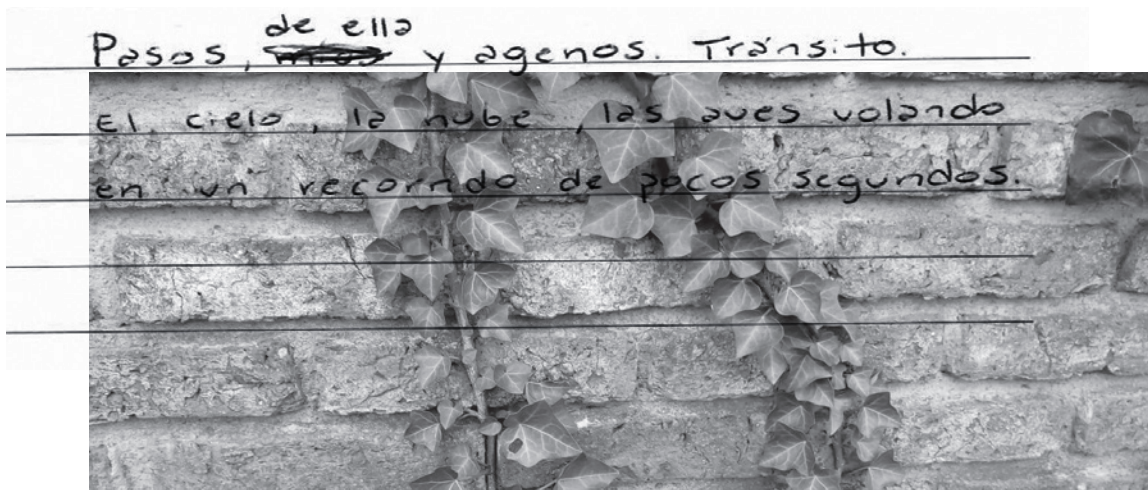 Pasos, de ella y agenos. Tránsito.
El cielo, la nube, las aves volando
en un recorrido de pocos segundos.